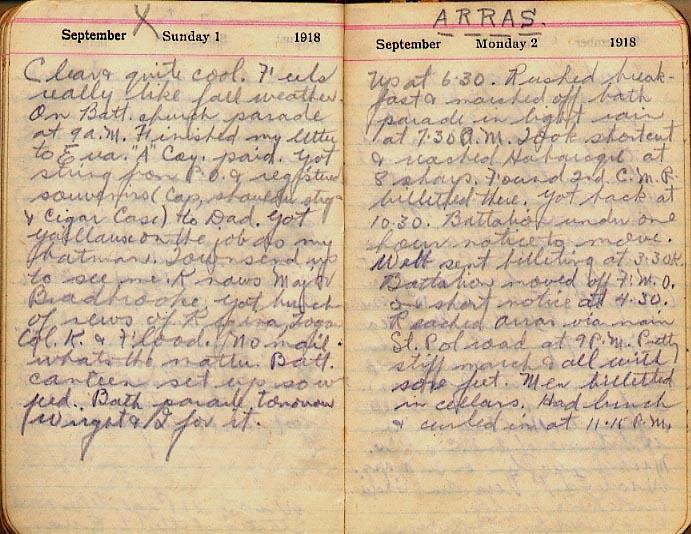 X
September Sunday 1 1918
Clear & quite cool. Feels
really like fall weather.
On Batt. church parade
at 9 a.M. Finished my letter
to Eva. "A" Coy. paid. Got
string from P.O. & registered
souvenirs (Cap, shoulder
& Cigar Case) to Dad. Got
on the job as my
batman. Townsend up
to see me. Knows Major
Bradbrooke. Got bunch
of news of Regina,
Col. K. & Flood. No mail.
whats the matter. Batt.
canteen set up so w
fed. Bath parade tomorrow
Wright & I for it.
ARRAS.
September Monday 2 1918
Up at 6.30. Rushed break-
fast & marched off bath
parade in light rain
at 7.30 A.M. Took shortcut
& reached at
8 sharp. Found 2nd C.M.R.
billetted there. Got back at
10.30. Battalion under one
hour notice to move.
Watt sent billeting at 3.30.
Battalion moved off F.M.O.
short notice at 4.30.
Reached Arras via main
St. Pol road at 9 P.M. Pretty
stiff march & all with
sore feet. Men billetted
in cellars. Had lunch
& curled in at 11.15 P.M.